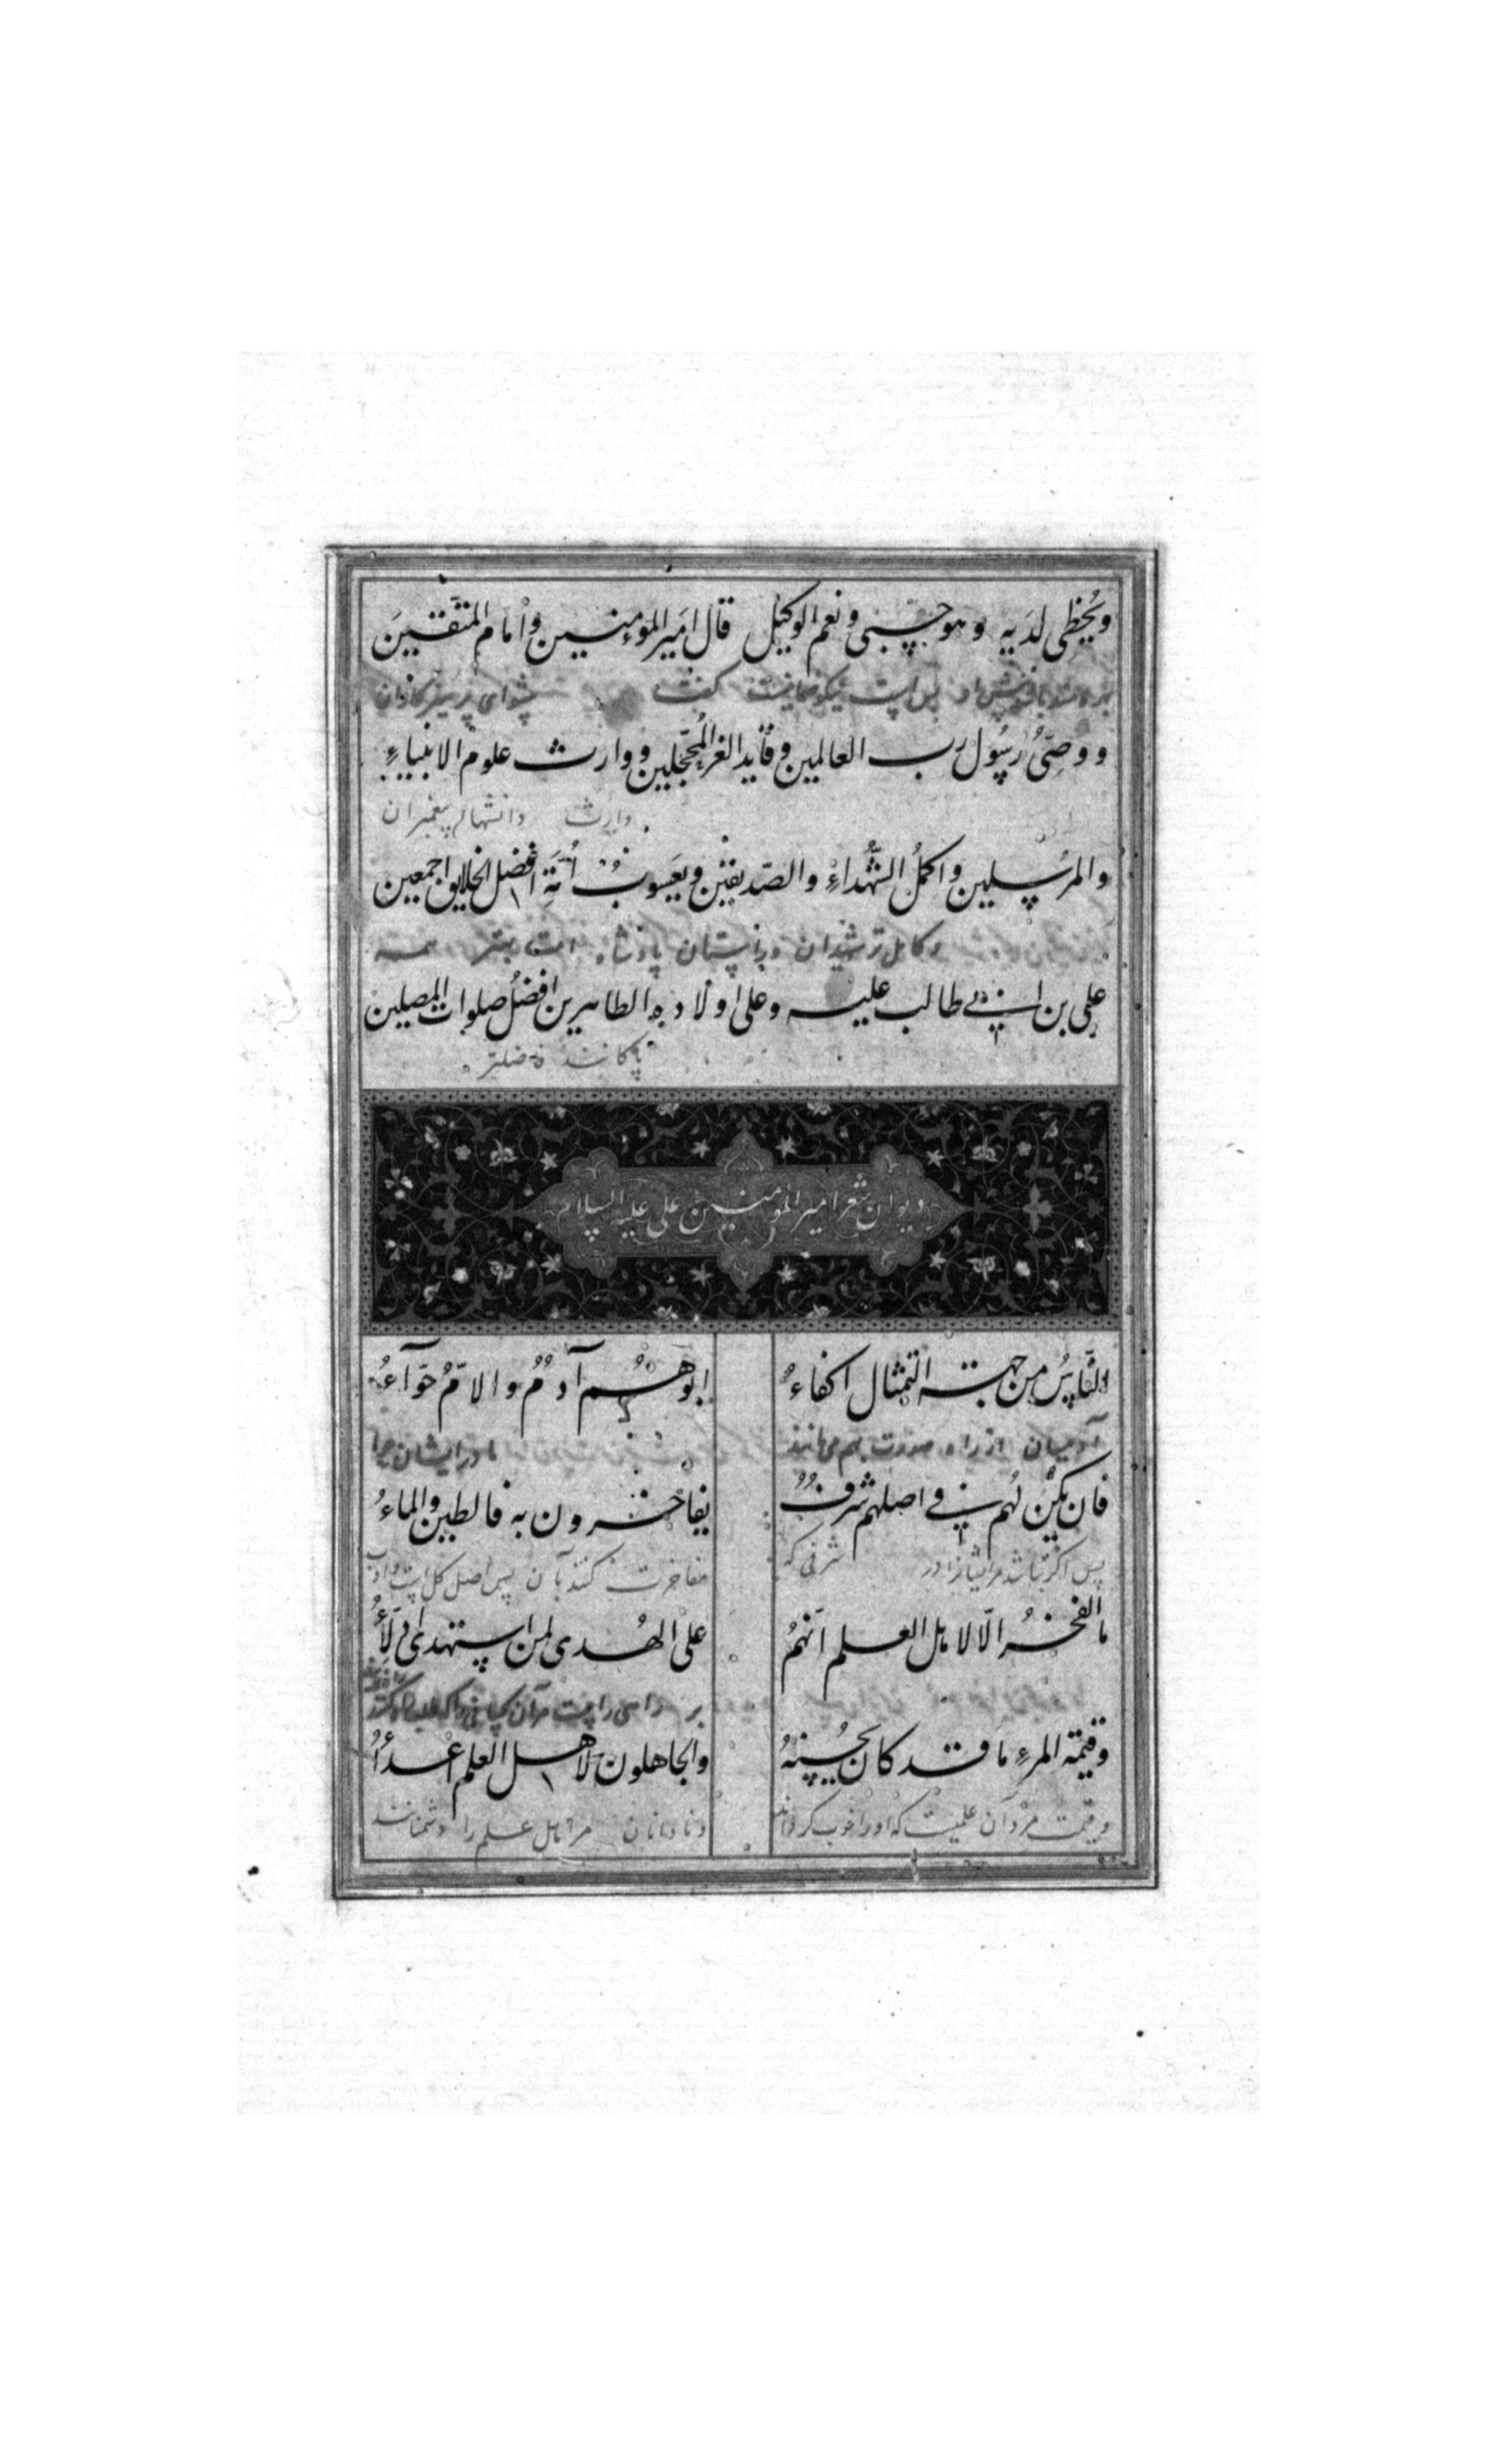 ويُحظى لديه وهو حسبى ونعم الوكيل قال امير المؤمنين وامام المتّقين
بس است نیکو گفت پیشوای پرهیزکاران
ووصىُّ رسُول رب العالمين وقايد الغر المُحجّلين ووارث علوم الانبياءِ
وارث دانشهای پیغمبران
والمرُسلين واكملُ الشُّهداءِ والصّديقين ويعسوبُ اُمّةِ افضل الخلايق اجمعين
وکامل تر شهیدان وراستان پادشاه امت بهتر همه
على بن ابي طالب عليه وعلى اولاده الطاهرين افضلُ صلوات المصلين
پاکانند فاضلتر
ديوان شعر امير المؤمنين على عليه السلام
النّاسُ من جهة التمثال اكفاءُ ابوهُمُ آدمُ والامّ حوّآءُ
آدمیان از راه صورت هم مانند مادر ایشان حوا
فان يكن لهم في اصلهم شرفٌ يفاخرون به فالطين والماءُ
پس اگر باشد مرایشانرا در شرفی که مفاخرت کنند بآن پس اصل کل است وآب
ما الفخرُ الّا لاهل العلم انهمُ على الهُدى لمن استهدى ادلّاءُ
بر راه راست مرآن کسانی را که
وقيمة المرءِ ما قد كان يُحسنهُ والجاهلون لاهل العلم اعداءُ
وقیمت مرد آن علمیست که اورا خوب کرداند ونادانان مراهل علم را دشمنانند